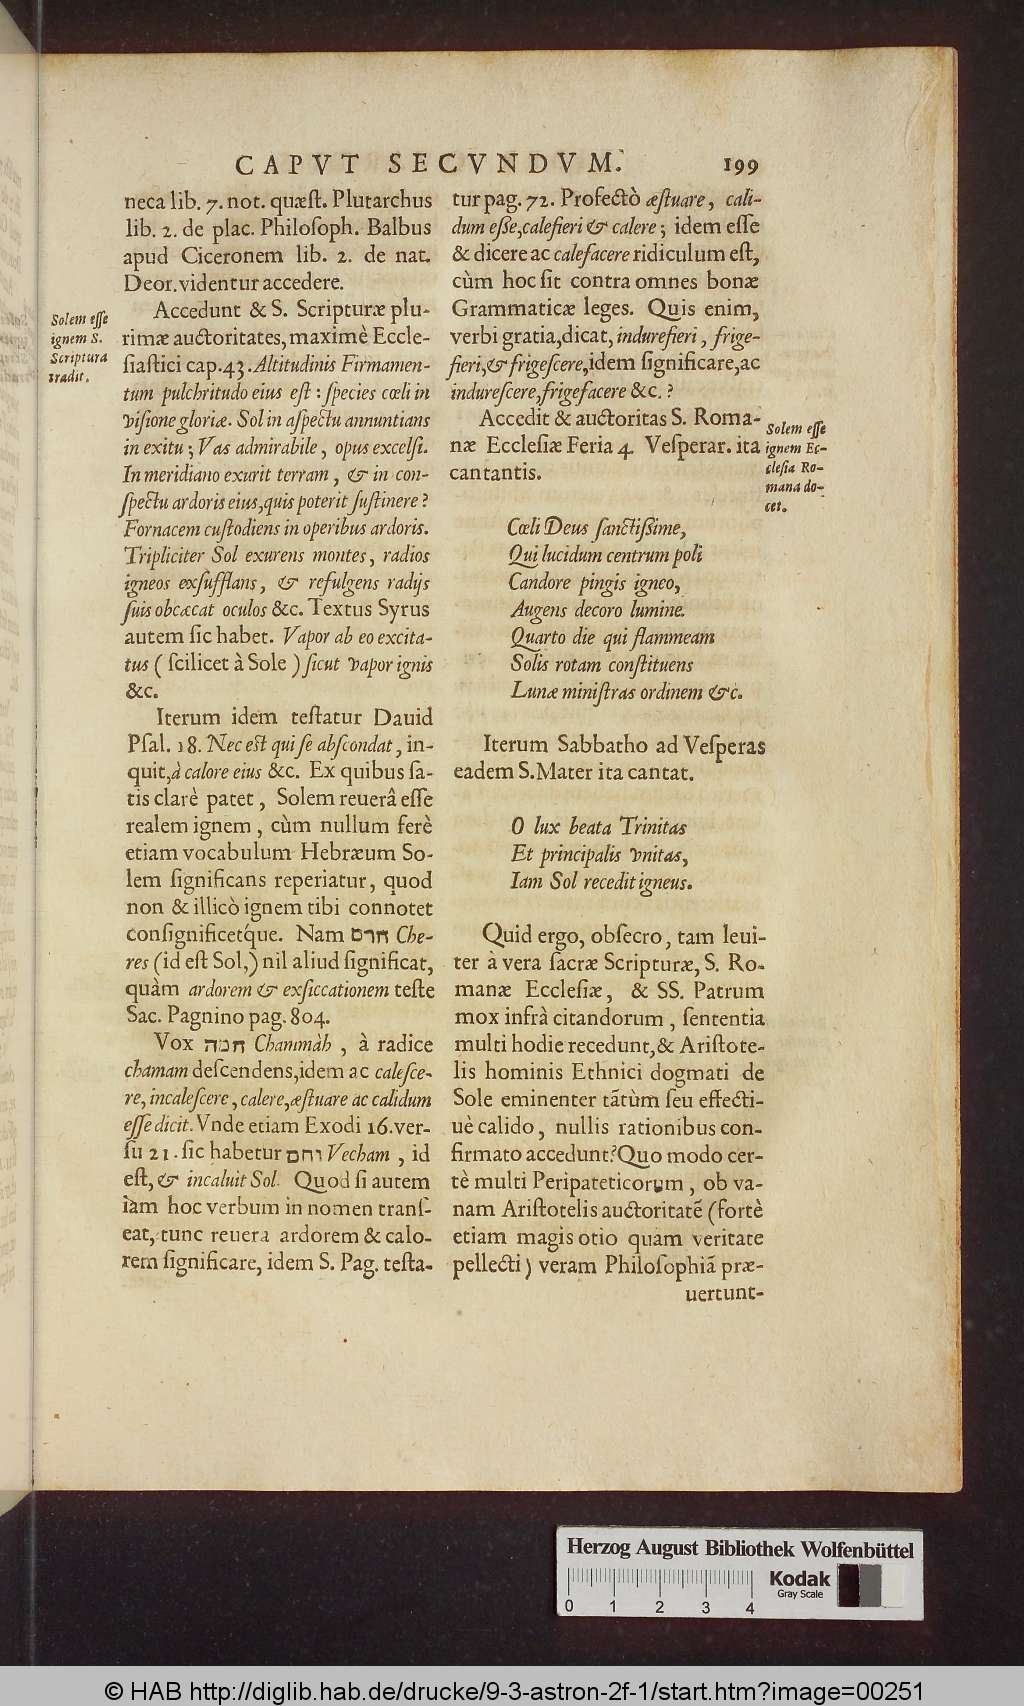 CAPVT SECVNDVM. 199
neca lib. 7. not. quæſt. Plutarchus
lib. 2. de plac. Philoſoph. Balbus
apud Ciceronem lib. 2. de nat.
Deor. videntur accedere.
Accedunt & S. Scripturæ plu-
rimæ auctoritates, maximè Eccle-
ſiaſtici cap. 43. Altitudinis Firmamen-
tum pulchritudo eius eſt : ſpecies cœli in
viſione gloriæ. Sol in aſpectu annuntians
in exitu ; Vas admirabile, opus excelſi.
In meridiano exurit terram, & in con-
ſpectu ardoris eius, quis poterit ſuſtinere ?
Fornacem cuſtodiens in operibus ardoris.
Tripliciter Sol exurens montes, radios
igneos exſufflans, & refulgens radijs
ſuis obcæcat oculos &c. Textus Syrus
autem ſic habet. Vapor ab eo excita-
tus ( ſcilicet à Sole ) ſicut vapor ignis
&c.
Iterum idem teſtatur Dauid
Pſal. 18. Nec est qui ſe abſcondat, in-
quit, à calore eius &c. Ex quibus ſa-
tis clarè patet, Solem reuerâ eſſe
realem ignem, cùm nullum ferè
etiam vocabulum Hebræum So-
lem ſignificans reperiatur, quod
non & illicò ignem tibi connotet
conſignificetq́ue. Nam חרס Che-
res (id eſt Sol,) nil aliud ſignificat,
quàm ardorem & exſiccationem teſte
Sac. Pagnino pag. 804.
Vox חמה Chammàh, à radice
chamam deſcendens, idem ac caleſce-
re, incaleſcere, calere, æſtuare ac calidum
eſſe dicit. Vnde etiam Exodi 16. ver-
ſu 21. ſic habetur וחם Vecham, id
eſt, & incaluit Sol. Quod ſi autem
iàm hoc verbum in nomen tranſ-
eat, tunc reuera ardorem & calo-
rem ſignificare, idem S. Pag. teſta-
Solem eſſe
ignem S.
Scriptura
tradit.
tur pag. 72. Profectò æſtuare, cali-
dum eſſe, calefieri & calere ; idem eſſe
& dicere ac calefacere ridiculum eſt,
cùm hoc ſit contra omnes bonæ
Grammaticæ leges. Quis enim,
verbi gratia, dicat, indurefieri, frige-
fieri, & frigeſcere, idem ſignificare, ac
indureſcere, frigefacere &c. ?
Accedit & auctoritas S. Roma-
næ Eccleſiæ Feria 4. Veſperar. ita
cantantis.
Solem eſſe
ignem Ec-
cleſia Ro-
mana do-
cet.
Cœli Deus ſanctiſſime,
Qui lucidum centrum poli
Candore pingis igneo,
Augens decoro lumine.
Quarto die qui flammeam
Solis rotam conſtituens
Lunæ miniſtras ordinem &c.
Iterum Sabbatho ad Veſperas
eadem S. Mater ita cantat.
O lux beata Trinitas
Et principalis vnitas,
Iam Sol recedit igneus.
Quid ergo, obſecro, tam leui-
ter à vera ſacræ Scripturæ, S. Ro-
manæ Eccleſiæ, & SS. Patrum
mox infrà citandorum, ſententia
multi hodie recedunt, & Ariſtote-
lis hominis Ethnici dogmati de
Sole eminenter tātùm ſeu effecti-
uè calido, nullis rationibus con-
firmato accedunt? Quo modo cer-
tè multi Peripateticorum, ob va-
nam Ariſtotelis auctoritatē (fortè
etiam magis otio quàm veritate
pellecti) veram Philoſophiā præ-
uertunt-
Herzog August Bibliothek Wolfenbüttel
Kodak
Gray Scale
0 1 2 3 4
© HAB http://diglib.hab.de/drucke/9-3-astron-2f-1/start.htm?image=00251